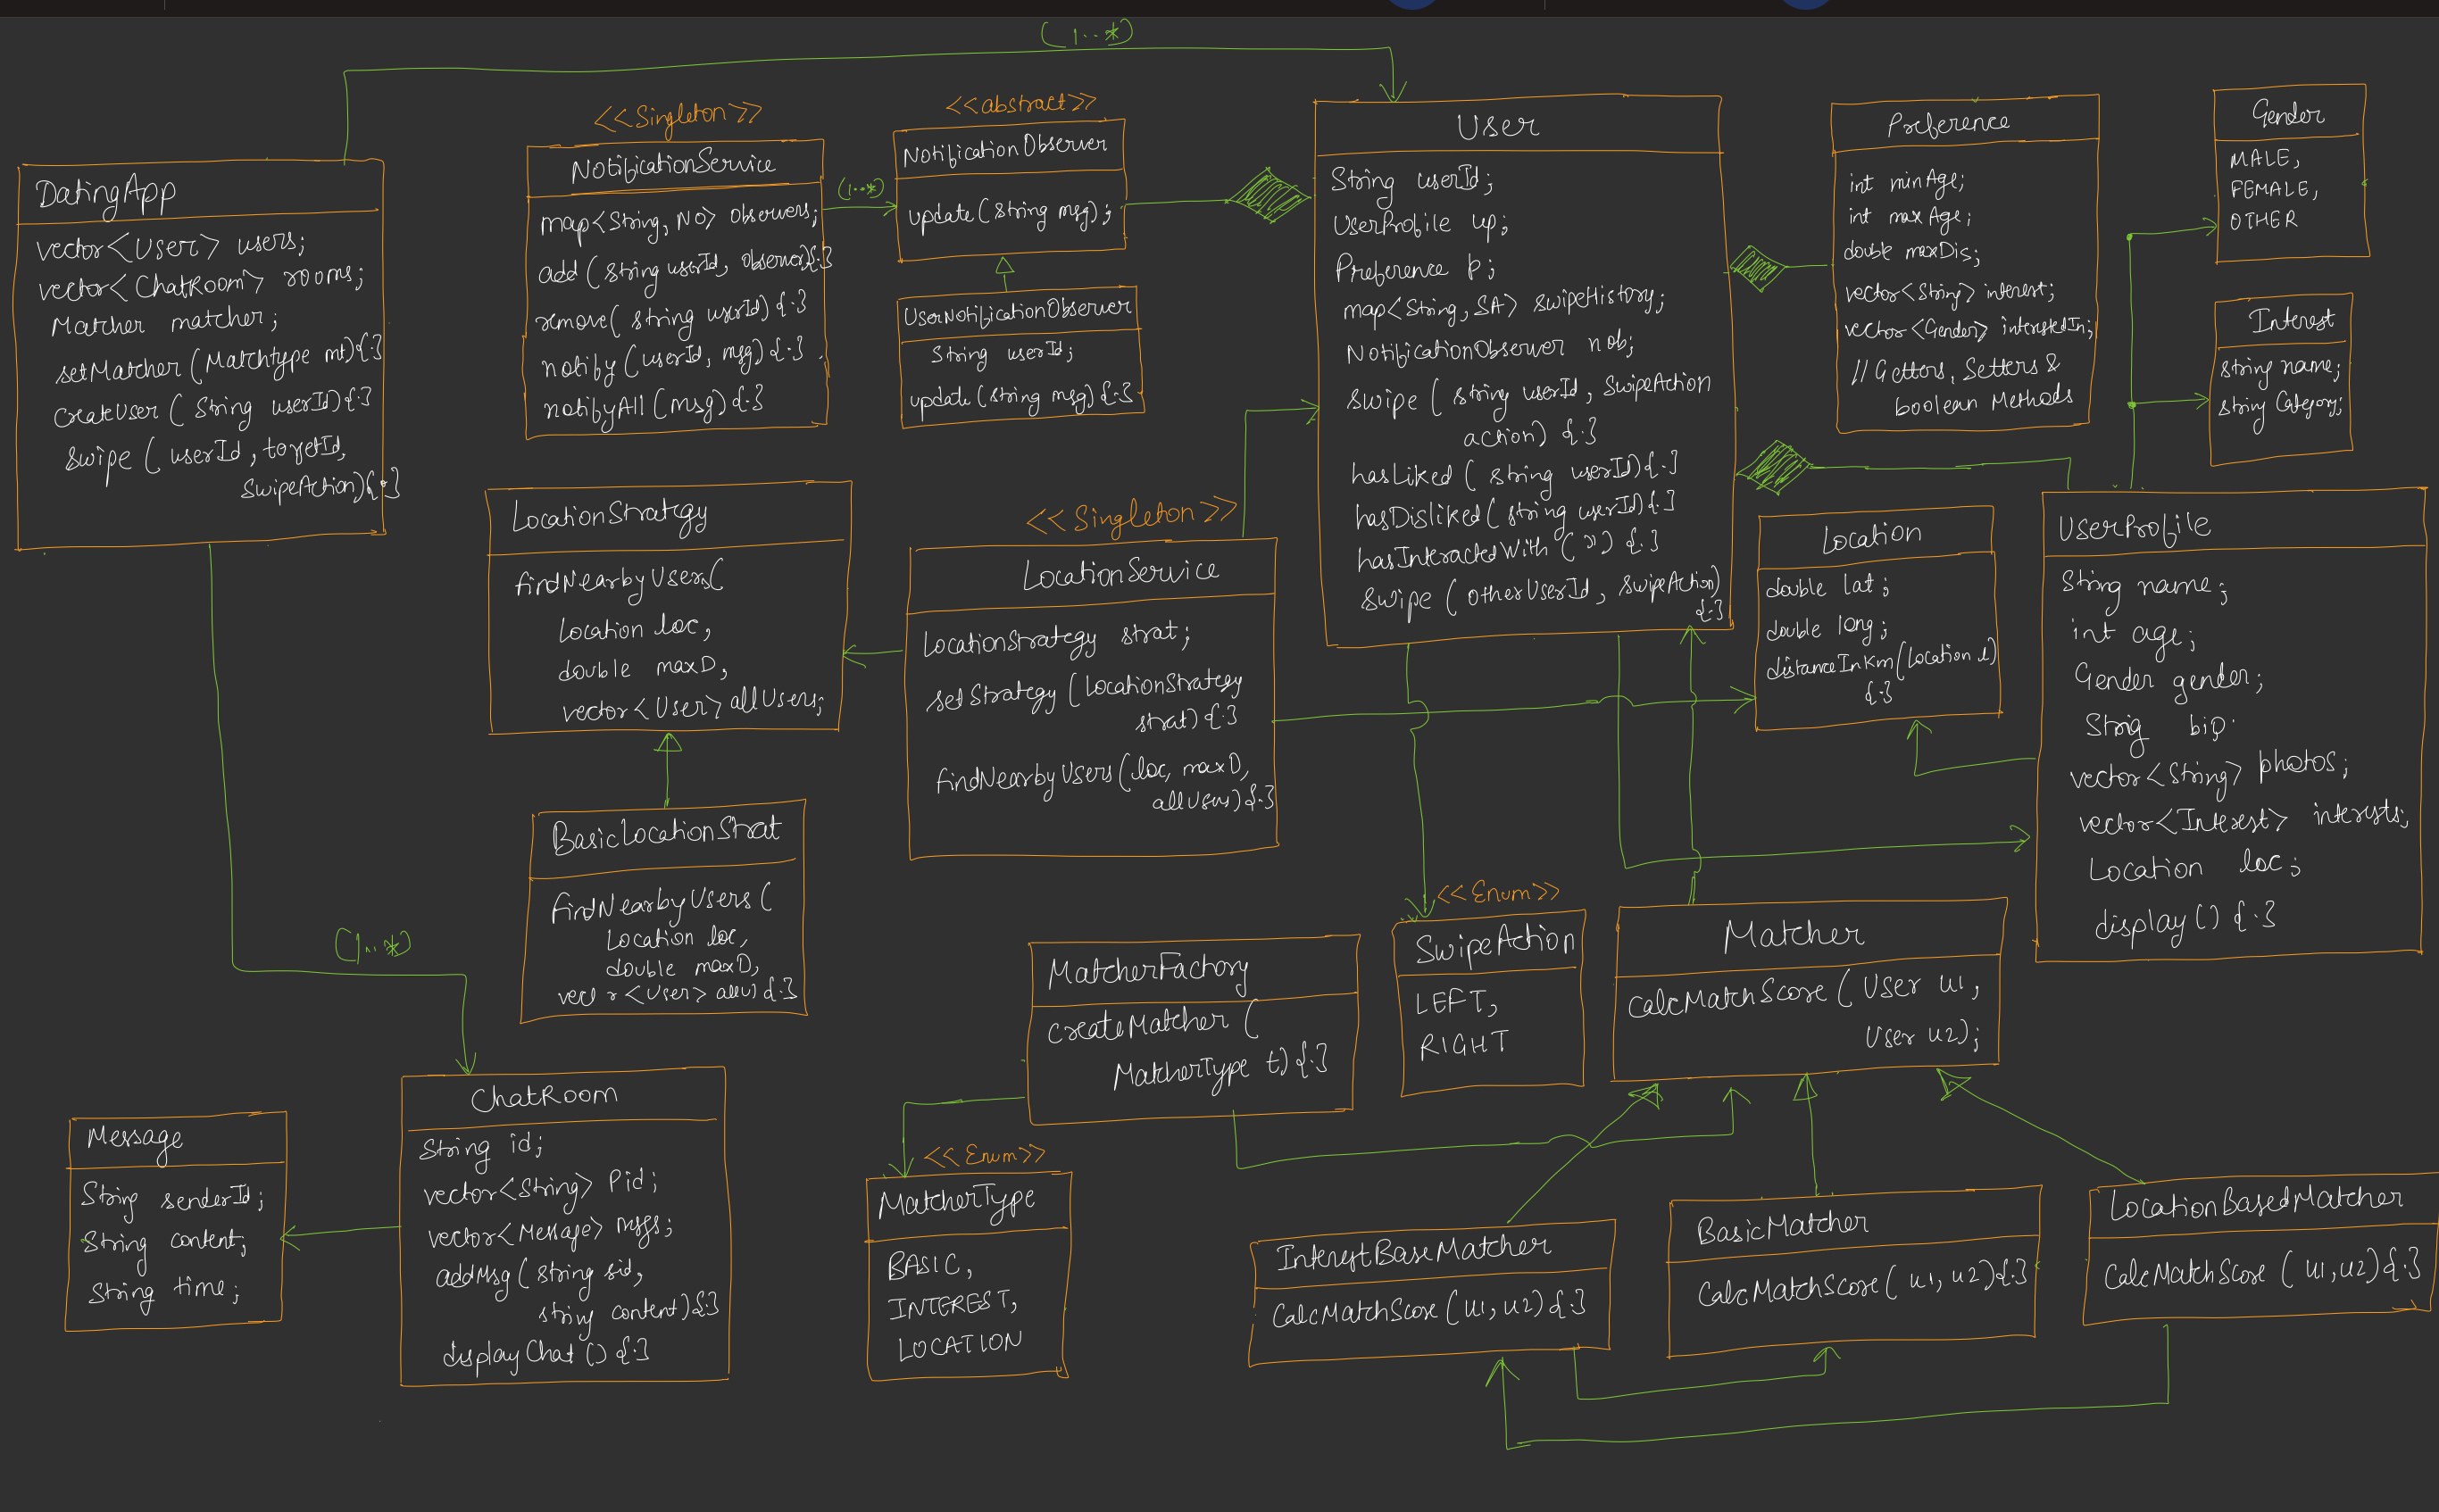 (1..*)
DatingApp
vector<User> users;
vector<ChatRoom> rooms;
Matcher matcher;
setMatcher (Matchtype mt){.}
createUser ( String userId){.}
Swipe ( userId, targetId,
SwipeAction){.}
<<Singleton>>
NotificationService
map<String, NO> observers;
add (string userId, observer){.}
remove( string userId) {.}
notify (userId, msg) {.}
notifyAll (msg) {.}
(1..*)
<<abstract>>
NotificationObserver
update(string msg);
UserNotificationObserver
String userId;
update(string msg){.}
User
String userId;
UserProfile up;
Preference p;
map<String, SA> swipeHistory;
NotificationObserver nob;
Swipe ( string userId, SwipeAction
action) {.}
hasLiked ( string userId){.}
hasDisliked( string userId){.}
hasInteractedWith ( ") {.}
Swipe ( otherUserId, SwipeAction)
{.}
Preference
int minAge;
int maxAge;
double maxDis;
vector<String> interest;
vector<Gender> interestedIn;
// Getters, Setters &
boolean Methods
Gender
MALE,
FEMALE,
OTHER
Interest
string name;
string Category;
LocationStrategy
findNearbyUsers(
Location loc,
double maxD,
vector<User> allUsers;
<<Singleton>>
LocationService
LocationStrategy strat;
setStrategy (LocationStrategy
strat) {.}
findNearbyUsers(loc, maxD,
allUsers){.}
Location
double lat;
double long;
distanceInKm(Location l)
{.}
UserProfile
String name;
int age;
Gender gender;
String bio;
vector<String> photos;
vector<Interest> interests;
Location loc;
display() {.}
BasicLocationStrat
findNearbyUsers (
Location loc,
double maxD,
vect r<User> allU) {.}
(1..*)
MatcherFactory
createMatcher (
MatcherType t) {.}
<<Enum>>
SwipeAction
LEFT,
RIGHT
Matcher
CalcMatchScore ( User u1,
User u2);
Message
String senderId;
String content;
String time;
ChatRoom
String id;
vector<String> Pid;
vector<Message> msgs;
addMsg ( string sid,
string content){.}
displayChat () {.}
<<Enum>>
MatcherType
BASIC,
INTEREST,
LOCATION
InterestBaseMatcher
CalcMatchScore (u1, u2) {.}
BasicMatcher
CalcMatchScore ( u1, u2){.}
LocationBasedMatcher
CalcMatchScore ( u1, u2) {.}